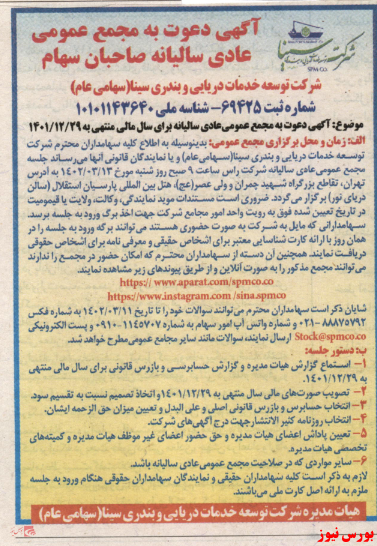 آگهی دعوت به مجمع عمومی
عادی سالیانه صاحبان سهام
شرکت سینا
SPMCO.
شرکت توسعه خدمات دریایی و بندری سینا(سهامی عام)
شماره ثبت ۶۹۴۲۵- شناسه ملی ۱۰۱۰۱۱۴۳۶۴۰
موضوع: آگهی دعوت به مجمع عمومی عادی سالیانه برای سال مالی منتهی به ۱۴۰۱/۱۲/۲۹
الف: زمان و محل برگزاری مجمع عمومی: بدینوسیله به اطلاع کلیه سهامداران محترم شرکت
توسعه خدمات دریایی و بندری سینا(سهامی عام) و یا نمایندگان قانونی آنها می‌رساند جلسه
مجمع عمومی عادی سالیانه شرکت راس ساعت ۹ صبح روز شنبه مورخ ۱۴۰۲/۰۳/۱۳ به آدرس
تهران، تقاطع بزرگراه شهید چمران و ولی عصر(عج)، هتل بین المللی پارسیان استقلال (سالن
دریای نور) برگزار می‌گردد. ضروری است مستندات موید نمایندگی، وکالت، ولایت یا قیمومیت
در تاریخ تعیین شده فوق به رویت واحد امور مجامع شرکت جهت اخذ برگ ورود به جلسه برسد.
سهامدارانی که مایل به شرکت به صورت حضوری هستند می‌توانند برگه ورود به جلسه را در
همان روز با ارائه کارت شناسایی معتبر برای اشخاص حقیقی و معرفی نامه برای اشخاص حقوقی
دریافت نمایند. همچنین آن دسته از سهامداران محترم که امکان حضور در مجمع را ندارند
می‌توانند مجمع مذکور را به صورت آنلاین و از طریق پیوندهای زیر مشاهده نمایند.
https://www.aparat.com/spmco.co
https://www.instagram.com/sina.spmco
شایان ذکر است سهامداران محترم می‌توانند سوالات خود را تا تاریخ ۱۴۰۲/۰۳/۱۱ به شماره فکس
۰۲۱-۸۸۸۷۵۷۹۲ و شماره واتس آپ امور سهام به شماره ۰۹۱۰-۱۱۴۵۷۰۷ و پست الکترونیکی
Stock@spmco.co ارسال نمایند، سوالات مانند سایر مجامع عمومی مطرح خواهد شد.
ب: دستور جلسه:
۱- استماع گزارش هیات مدیره و گزارش حسابرسی و بازرس قانونی برای سال مالی منتهی
به ۱۴۰۱/۱۲/۲۹.
۲- تصویب صورت‌های مالی سال منتهی به ۱۴۰۱/۱۲/۲۹ و اتخاذ تصمیم نسبت به تقسیم سود.
۳- انتخاب حسابرس و بازرس قانونی اصلی و علی البدل و تعیین میزان حق الزحمه ایشان.
۴- انتخاب روزنامه کثیر الانتشار جهت درج آگهی‌های شرکت.
۵- تعیین پاداش اعضای هیات مدیره و حق حضور اعضای غیر موظف هیات مدیره و کمیته‌های
تخصصی هیات مدیره.
۶- سایر مواردی که در صلاحیت مجمع عمومی عادی سالیانه باشد.
لازم به ذکر است کلیه سهامداران حقیقی و نمایندگان سهامداران حقوقی هنگام ورود به جلسه
ملزم به ارائه اصل کارت ملی می‌باشند.
هیات مدیره شرکت توسعه خدمات دریایی و بندری سینا(سهامی عام)
بورس نیوز